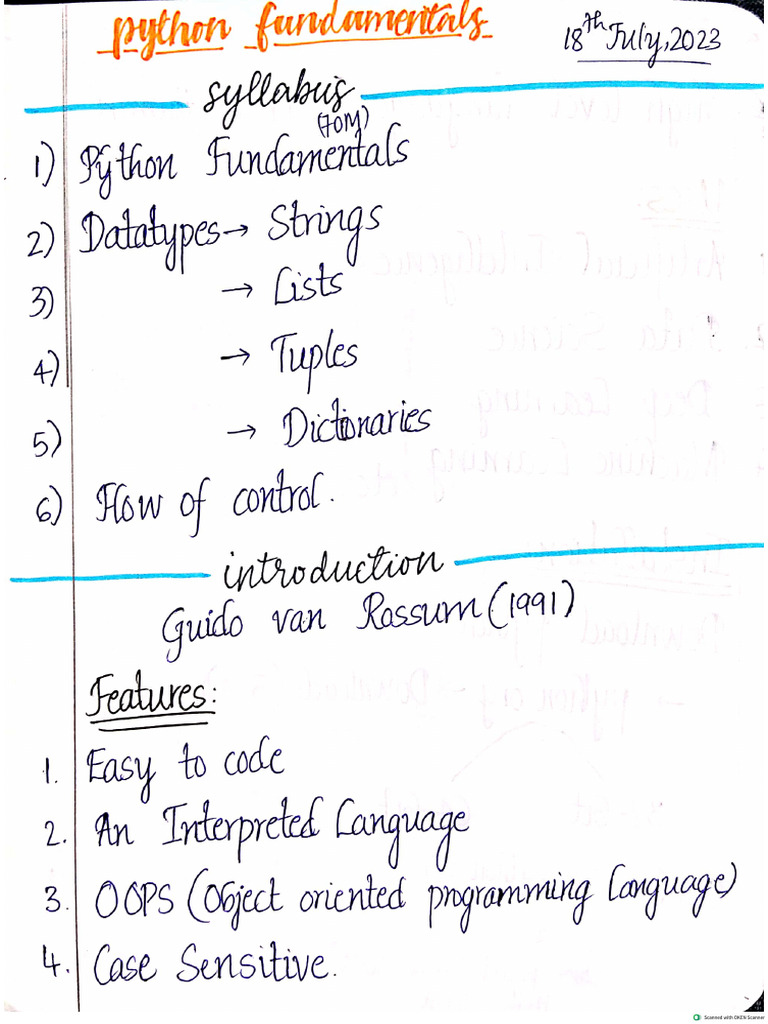 python fundamentals
18th July, 2023
syllabus
(70M)
1) Python Fundamentals
2) Datatypes → Strings
3) → Lists
4) → Tuples
5) → Dictionaries
6) Flow of control.
introduction
Guido van Rossum (1991)
Features:
1. Easy to code
2. An Interpreted Language
3. OOPS (Object oriented programming language)
4. Case Sensitive.
Scanned with OKEN Scanner